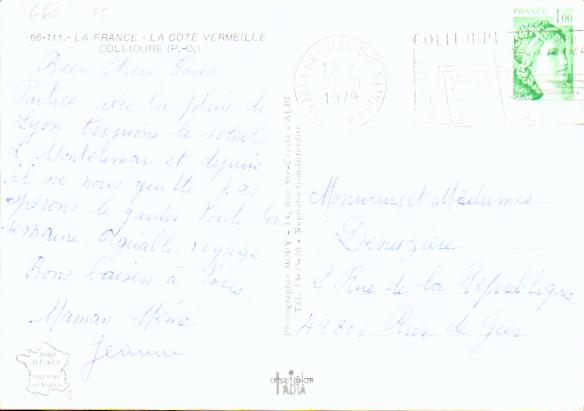 66-111.- LA FRANCE - LA COTE VERMEILLE
COLLIOURE (P.-O.)
Bien Chers Tous
Parties avec la pluie de
Lyon trouvons le soleil
à Montelimar et depuis
il ne nous quitte pas
esperons le garder toute la
semaine. Agréable voyage
Bons baisers à Tous
Maman Mimi
Jeanne
image
de France
imprimée
en France
Photographie MOPY - 14, Rue Ste-Cécile - ALBI
Tél. 54-25-20 - Reproduction interdite
OFFSET COLOR
COLLIOURE
12 H
-8
1979
COLLIOURE
FRANCE
1,00
Monsieur et Mesdames
2 Rue de la République
42800 Rive de Gier